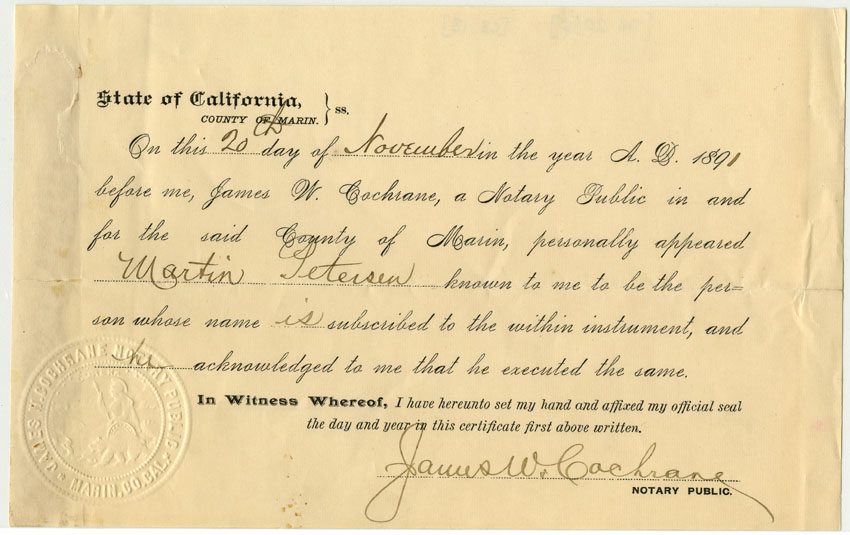 State of California,
COUNTY OF MARIN. } ss.
On this 20th day of November in the year A. D. 1891
before me, James W. Cochrane, a Notary Public in and
for the said County of Marin, personally appeared
Martin Petersen known to me to be the per=
son whose name is subscribed to the within instrument, and
he acknowledged to me that he executed the same.
In Witness Whereof, I have hereunto set my hand and affixed my official seal
the day and year in this certificate first above written.
James W. Cochrane
NOTARY PUBLIC.
JAMES W. COCHRANE NOTARY PUBLIC
MARIN.CO.CAL.